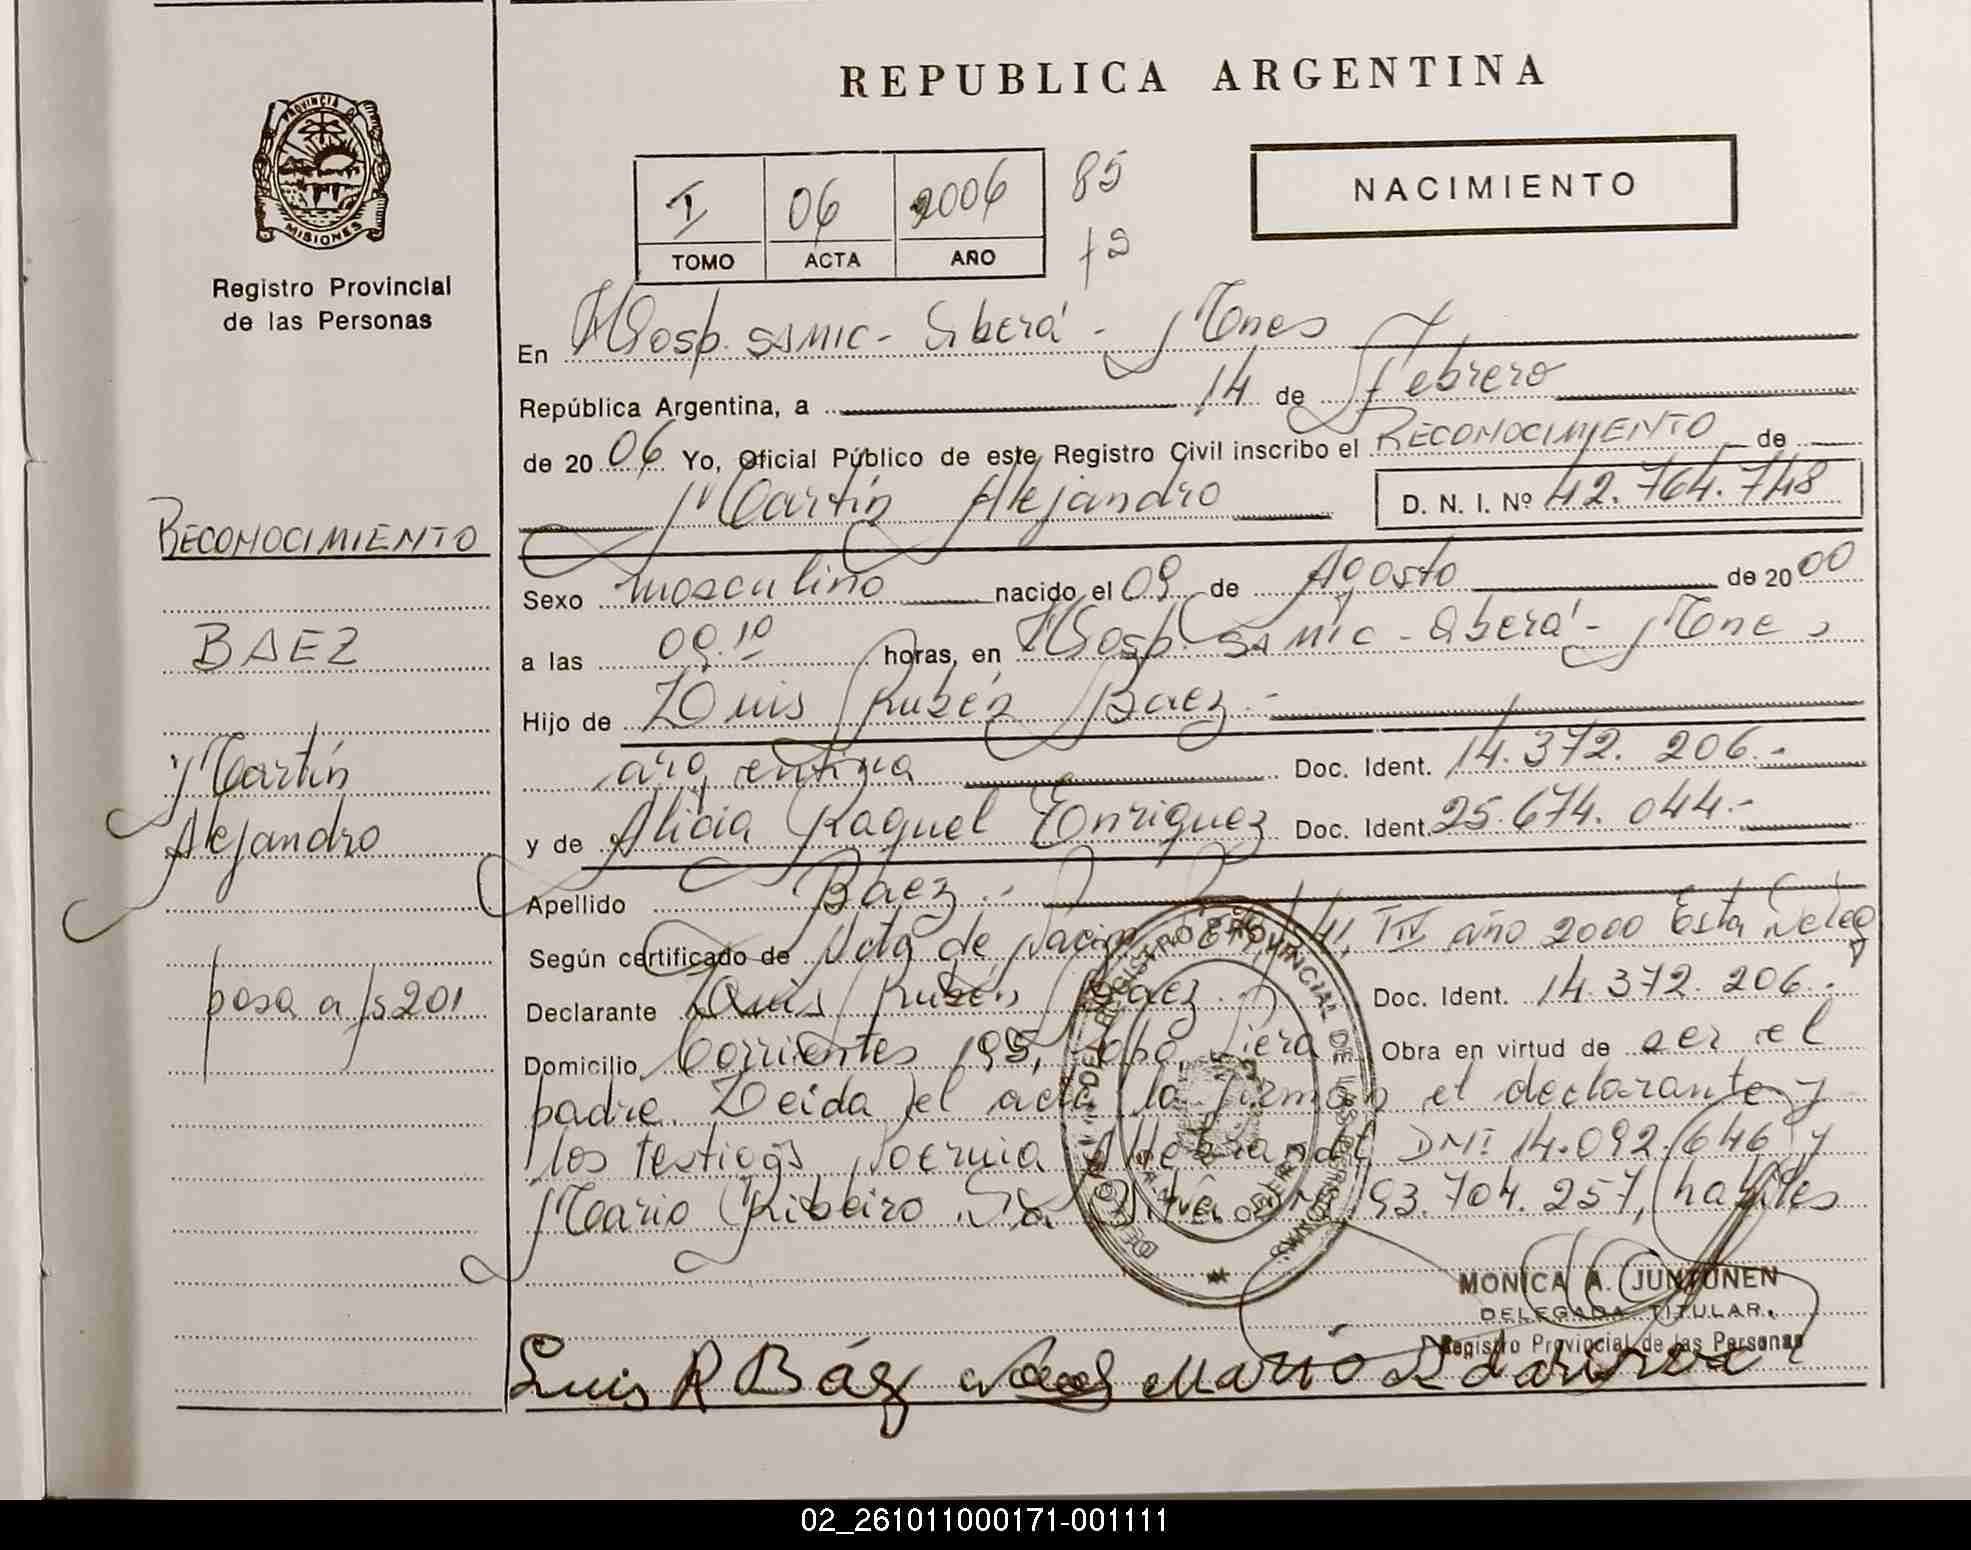 REPUBLICA ARGENTINA
PROVINCIA DE
MISIONES
Registro Provincial
de las Personas
I 06 2006 85
TOMO ACTA AÑO 12
NACIMIENTO
En Hosp. SAMIC - Oberá - Mnes
República Argentina, a 14 de Febrero
de 2006 Yo, Oficial Público de este Registro Civil inscribo el RECONOCIMIENTO de
Martín Alejandro D. N. I. Nº 42.764.748
RECONOCIMIENTO
BAEZ
Martín
Alejandro
pasa a fs 201
Sexo masculino nacido el 09 de Agosto de 2000
a las 09.10 horas, en Hosp. SAMIC - Oberá - Mnes
Hijo de Luis Rubén Baez.-
argentina Doc. Ident. 14.372.206.-
y de Alicia Raquel Enriquez Doc. Ident. 25.674.044.-
Apellido Baez.-
Según certificado de Acta de Nacim TIV año 2000 Esta Deleg
Declarante Luis Rubén Baez. Doc. Ident. 14.372.206.-
Domicilio Corrientes 195, Obra en virtud de ser el
padre. Leída el acta la firman el declarante y
los testigos DNI 14.092.646 y
Mario Ribeiro Da Silva 93.704.257, habiles
REGISTRO PROVINCIAL DE LAS PERSONAS
MONICA A. JUNTUNEN
DELEGADA TITULAR
Registro Provincial de las Personas
Luis R Báez Mario
02_261011000171-001111